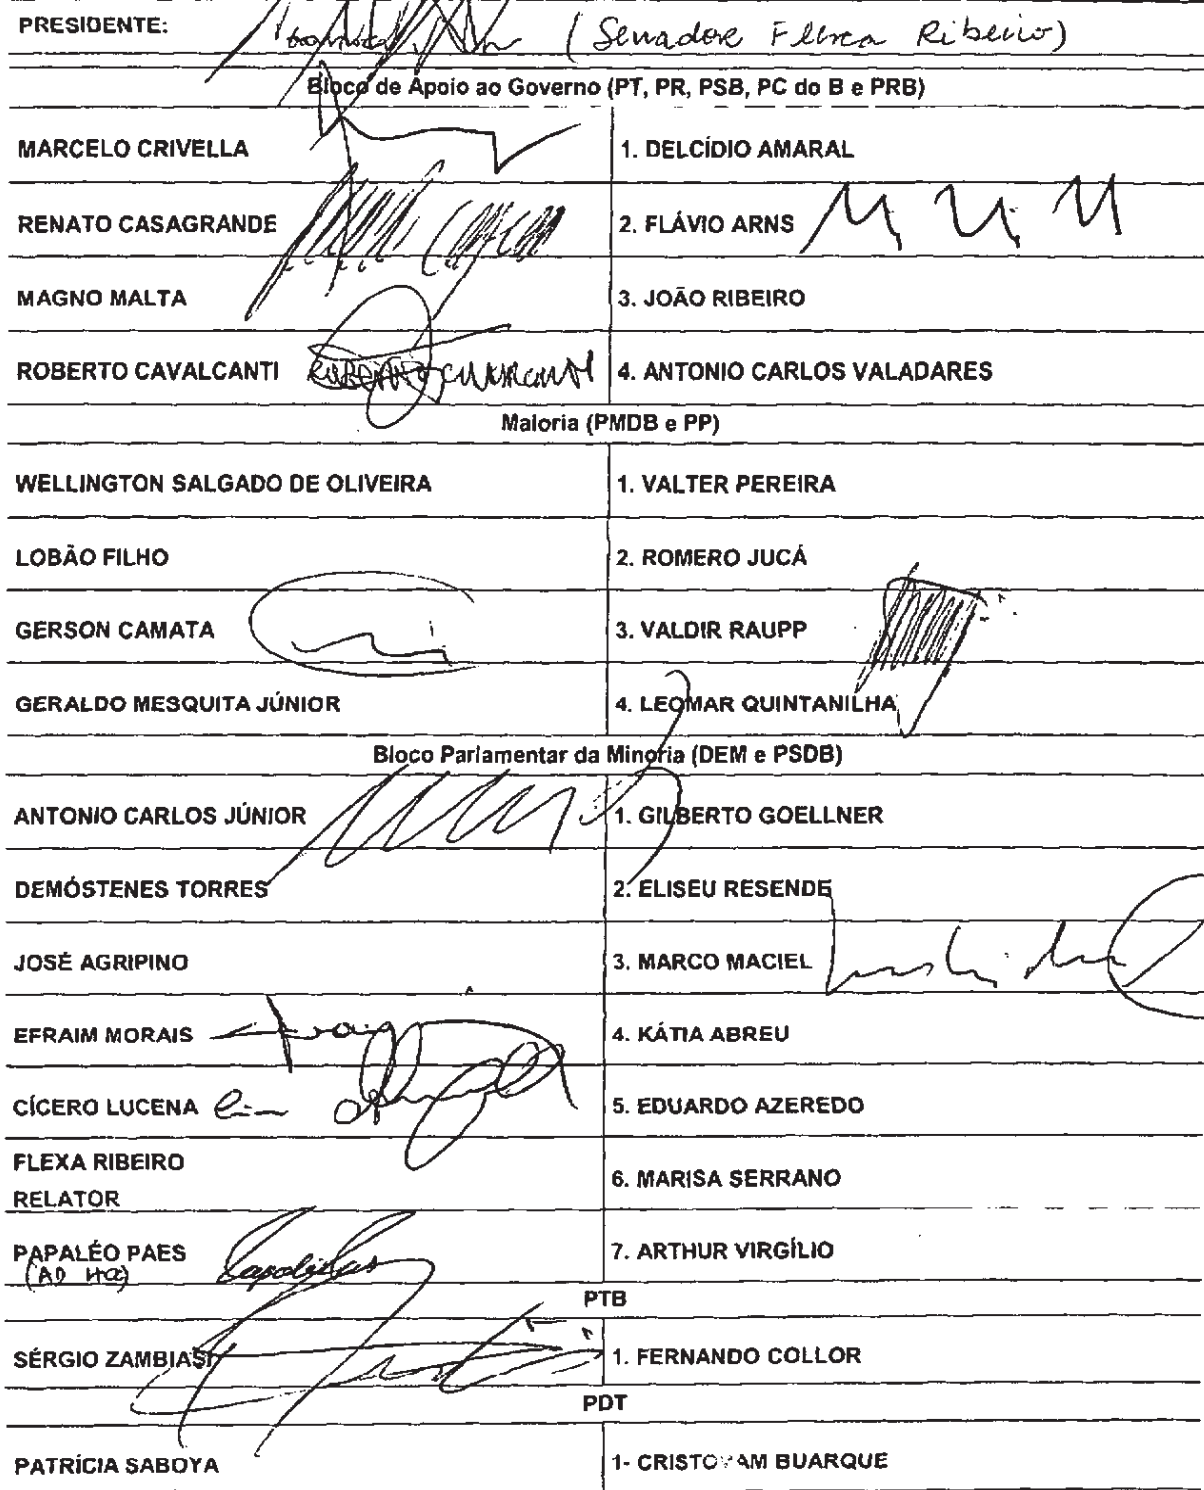 PRESIDENTE: (Senador Flexa Ribeiro)
Bloco de Apoio ao Governo (PT, PR, PSB, PC do B e PRB)
MARCELO CRIVELLA 1. DELCÍDIO AMARAL
RENATO CASAGRANDE 2. FLÁVIO ARNS
MAGNO MALTA 3. JOÃO RIBEIRO
ROBERTO CAVALCANTI 4. ANTONIO CARLOS VALADARES
Maioria (PMDB e PP)
WELLINGTON SALGADO DE OLIVEIRA 1. VALTER PEREIRA
LOBÃO FILHO 2. ROMERO JUCÁ
GERSON CAMATA 3. VALDIR RAUPP
GERALDO MESQUITA JÚNIOR 4. LEOMAR QUINTANILHA
Bloco Parlamentar da Minoria (DEM e PSDB)
ANTONIO CARLOS JÚNIOR 1. GILBERTO GOELLNER
DEMÓSTENES TORRES 2. ELISEU RESENDE
JOSÉ AGRIPINO 3. MARCO MACIEL
EFRAIM MORAIS 4. KÁTIA ABREU
CÍCERO LUCENA 5. EDUARDO AZEREDO
FLEXA RIBEIRO
RELATOR 6. MARISA SERRANO
PAPALÉO PAES 7. ARTHUR VIRGÍLIO
(AD HOC)
PTB
SÉRGIO ZAMBIASI 1. FERNANDO COLLOR
PDT
PATRÍCIA SABOYA 1- CRISTOVAM BUARQUE